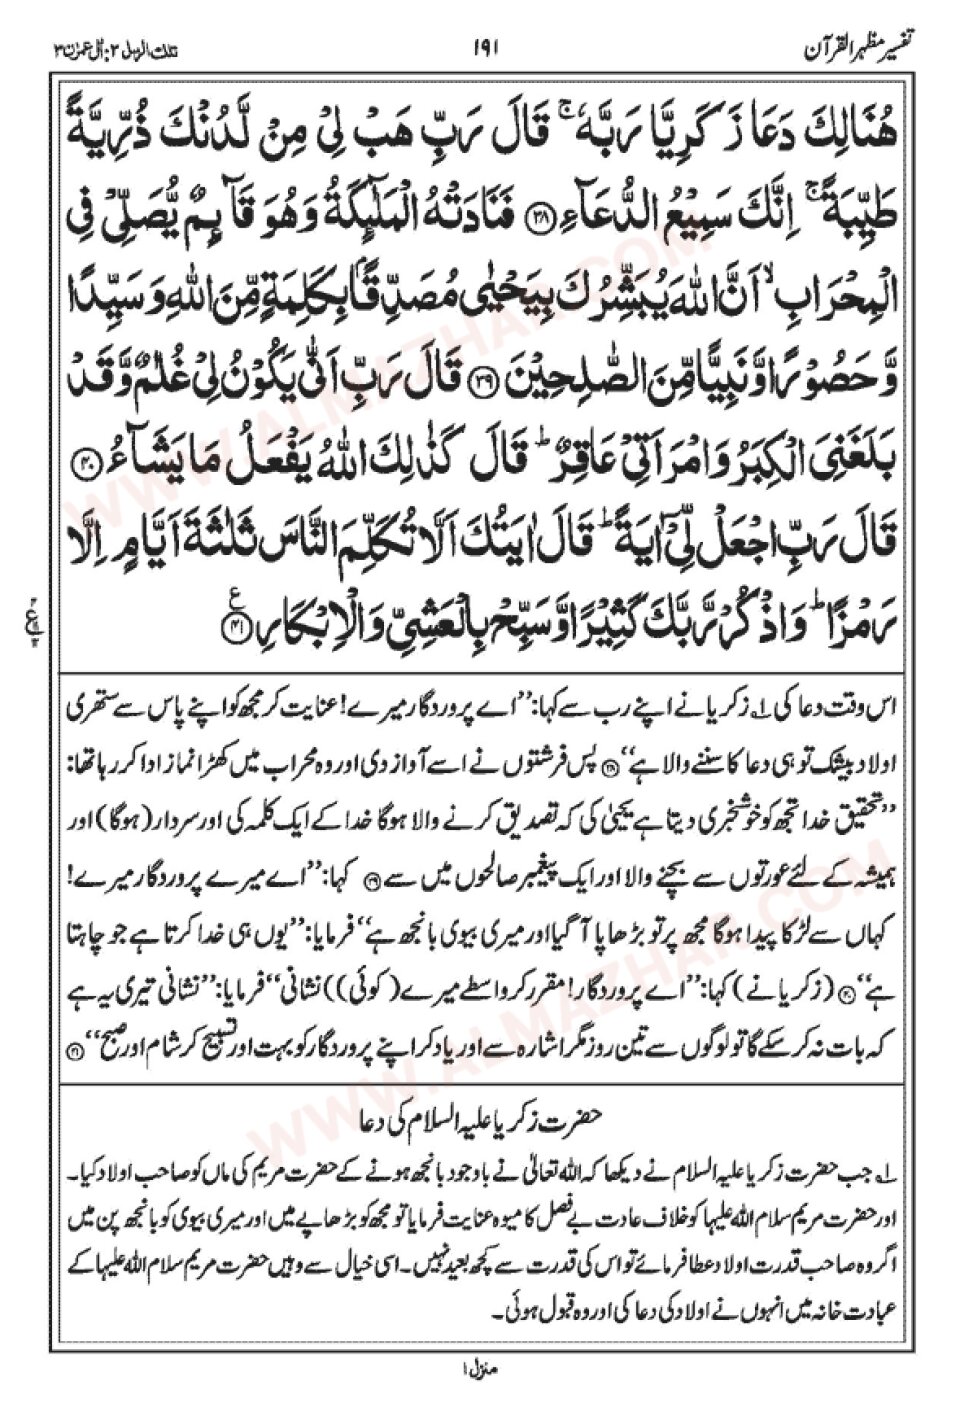 تفسیر مظہر القرآن
۱۹۱
تلك الرسل ۳: اٰل عمرٰن ۳
هُنَالِكَ دَعَا زَكَرِيَّا رَبَّهٗ ۚ قَالَ رَبِّ هَبْ لِيْ مِنْ لَّدُنْكَ ذُرِّيَّةً
طَيِّبَةً ۚ اِنَّكَ سَمِيْعُ الدُّعَآءِ ۝۳۸ فَنَادَتْهُ الْمَلٰٓئِكَةُ وَهُوَ قَآئِمٌ يُّصَلِّيْ فِي
الْمِحْرَابِ ۙ اَنَّ اللّٰهَ يُبَشِّرُكَ بِيَحْيٰى مُصَدِّقًۢا بِكَلِمَةٍ مِّنَ اللّٰهِ وَسَيِّدًا
وَّحَصُوْرًا وَّنَبِيًّا مِّنَ الصّٰلِحِيْنَ ۝۳۹ قَالَ رَبِّ اَنّٰى يَكُوْنُ لِيْ غُلٰمٌ وَّقَدْ
بَلَغَنِيَ الْكِبَرُ وَامْرَاَتِيْ عَاقِرٌ ؕ قَالَ كَذٰلِكَ اللّٰهُ يَفْعَلُ مَا يَشَآءُ ۝۴۰
قَالَ رَبِّ اجْعَلْ لِّيْٓ اٰيَةً ؕ قَالَ اٰيَتُكَ اَلَّا تُكَلِّمَ النَّاسَ ثَلٰثَةَ اَيَّامٍ اِلَّا
رَمْزًا ؕ وَاذْكُرْ رَّبَّكَ كَثِيْرًا وَّسَبِّحْ بِالْعَشِيِّ وَالْاِبْكَارِ ۝۴۱ ع
اس وقت دعا کی ۱؎ زکریا نے اپنے رب سے کہا: ’’اے پروردگار میرے! عنایت کر مجھ کو اپنے پاس سے ستھری
اولاد بیشک تو ہی دعا کا سننے والا ہے‘‘ ۝۳۸ پس فرشتوں نے اسے آواز دی اور وہ محراب میں کھڑا نماز ادا کر رہا تھا:
’’تحقیق خدا تجھ کو خوشخبری دیتا ہے یحیٰی کی کہ تصدیق کرنے والا ہوگا خدا کے ایک کلمہ کی اور سردار (ہوگا) اور
ہمیشہ کے لئے عورتوں سے بچنے والا اور ایک پیغمبر صالحوں میں سے ۝۳۹ کہا: ’’اے میرے پروردگار میرے!
کہاں سے لڑکا پیدا ہوگا مجھ پر تو بڑھاپا آگیا اور میری بیوی بانجھ ہے‘‘ فرمایا: ’’یوں ہی خدا کرتا ہے جو چاہتا
ہے‘‘ ۝۴۰ (زکریا نے) کہا: ’’اے پروردگار! مقرر کر واسطے میرے (کوئی)) نشانی‘‘ فرمایا: ’’نشانی تیری یہ ہے
کہ بات نہ کر سکے گا تو لوگوں سے تین روز مگر اشارہ سے اور یاد کر اپنے پروردگار کو بہت اور تسبیح کر شام اور صبح‘‘ ۝۴۱
حضرت زکریا علیہ السلام کی دعا
۱؎ جب حضرت زکریا علیہ السلام نے دیکھا کہ اللہ تعالیٰ نے باوجود بانجھ ہونے کے حضرت مریم کی ماں کو صاحب اولاد کیا۔
اور حضرت مریم سلام اللہ علیہا کو خلاف عادت بے فصل کا میوہ عنایت فرمایا تو مجھ کو بڑھاپے میں اور میری بیوی کو بانجھ پن میں
اگر وہ صاحب قدرت اولاد عطا فرمائے تو اس کی قدرت سے کچھ بعید نہیں۔ اسی خیال سے وہیں حضرت مریم سلام اللہ علیہا کے
عبادت خانہ میں انہوں نے اولاد کی دعا کی اور وہ قبول ہوئی۔
منزل ۱
WWW.ALMAZHAR.COM
WWW.ALMAZHAR.COM